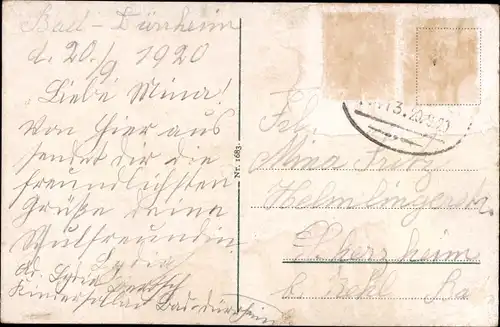 Bad-Dürrheim
d. 20./9 1920
Liebe Mina!
Von hier aus
sendet dir die
freundlichsten
Grüße deine
Schulfreundin
Lydia
Ad. Lydia
Kindersolbad Bad-dürrheim
Nr. 1683.
Frl.
Mina Fritz
Helmlingerstr.
b. Kehl Ba